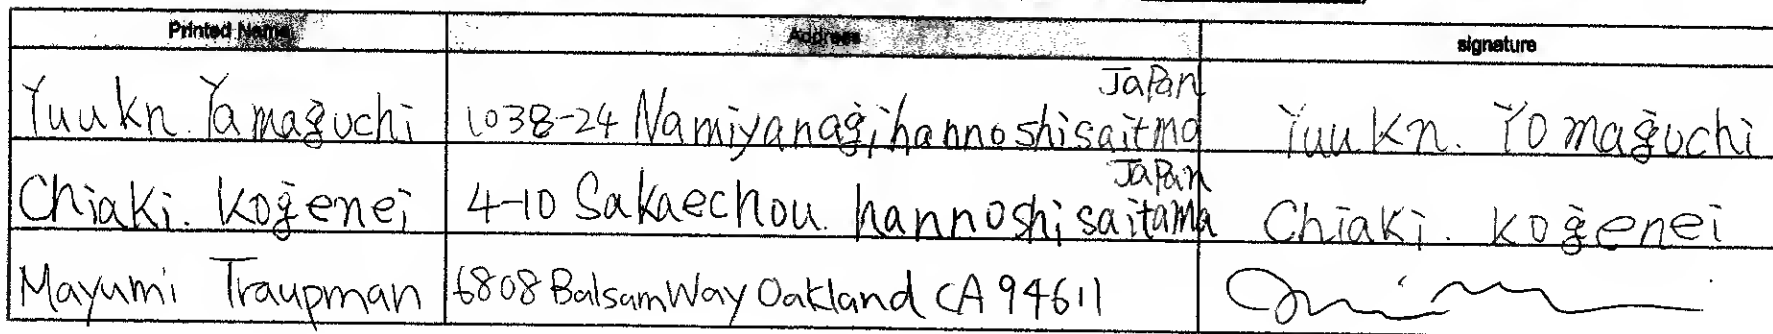 Printed Name Address signature
Yuukn. Yamaguchi 1038-24 Namiyanagi, hannoshisaitma Japan Yuukn. Yomaguchi
Chiaki. Kogenei 4-10 Sakaechou. hannoshi saitama Japan Chiaki. Kogenei
Mayumi Traupman 6808 Balsam Way Oakland CA 94611